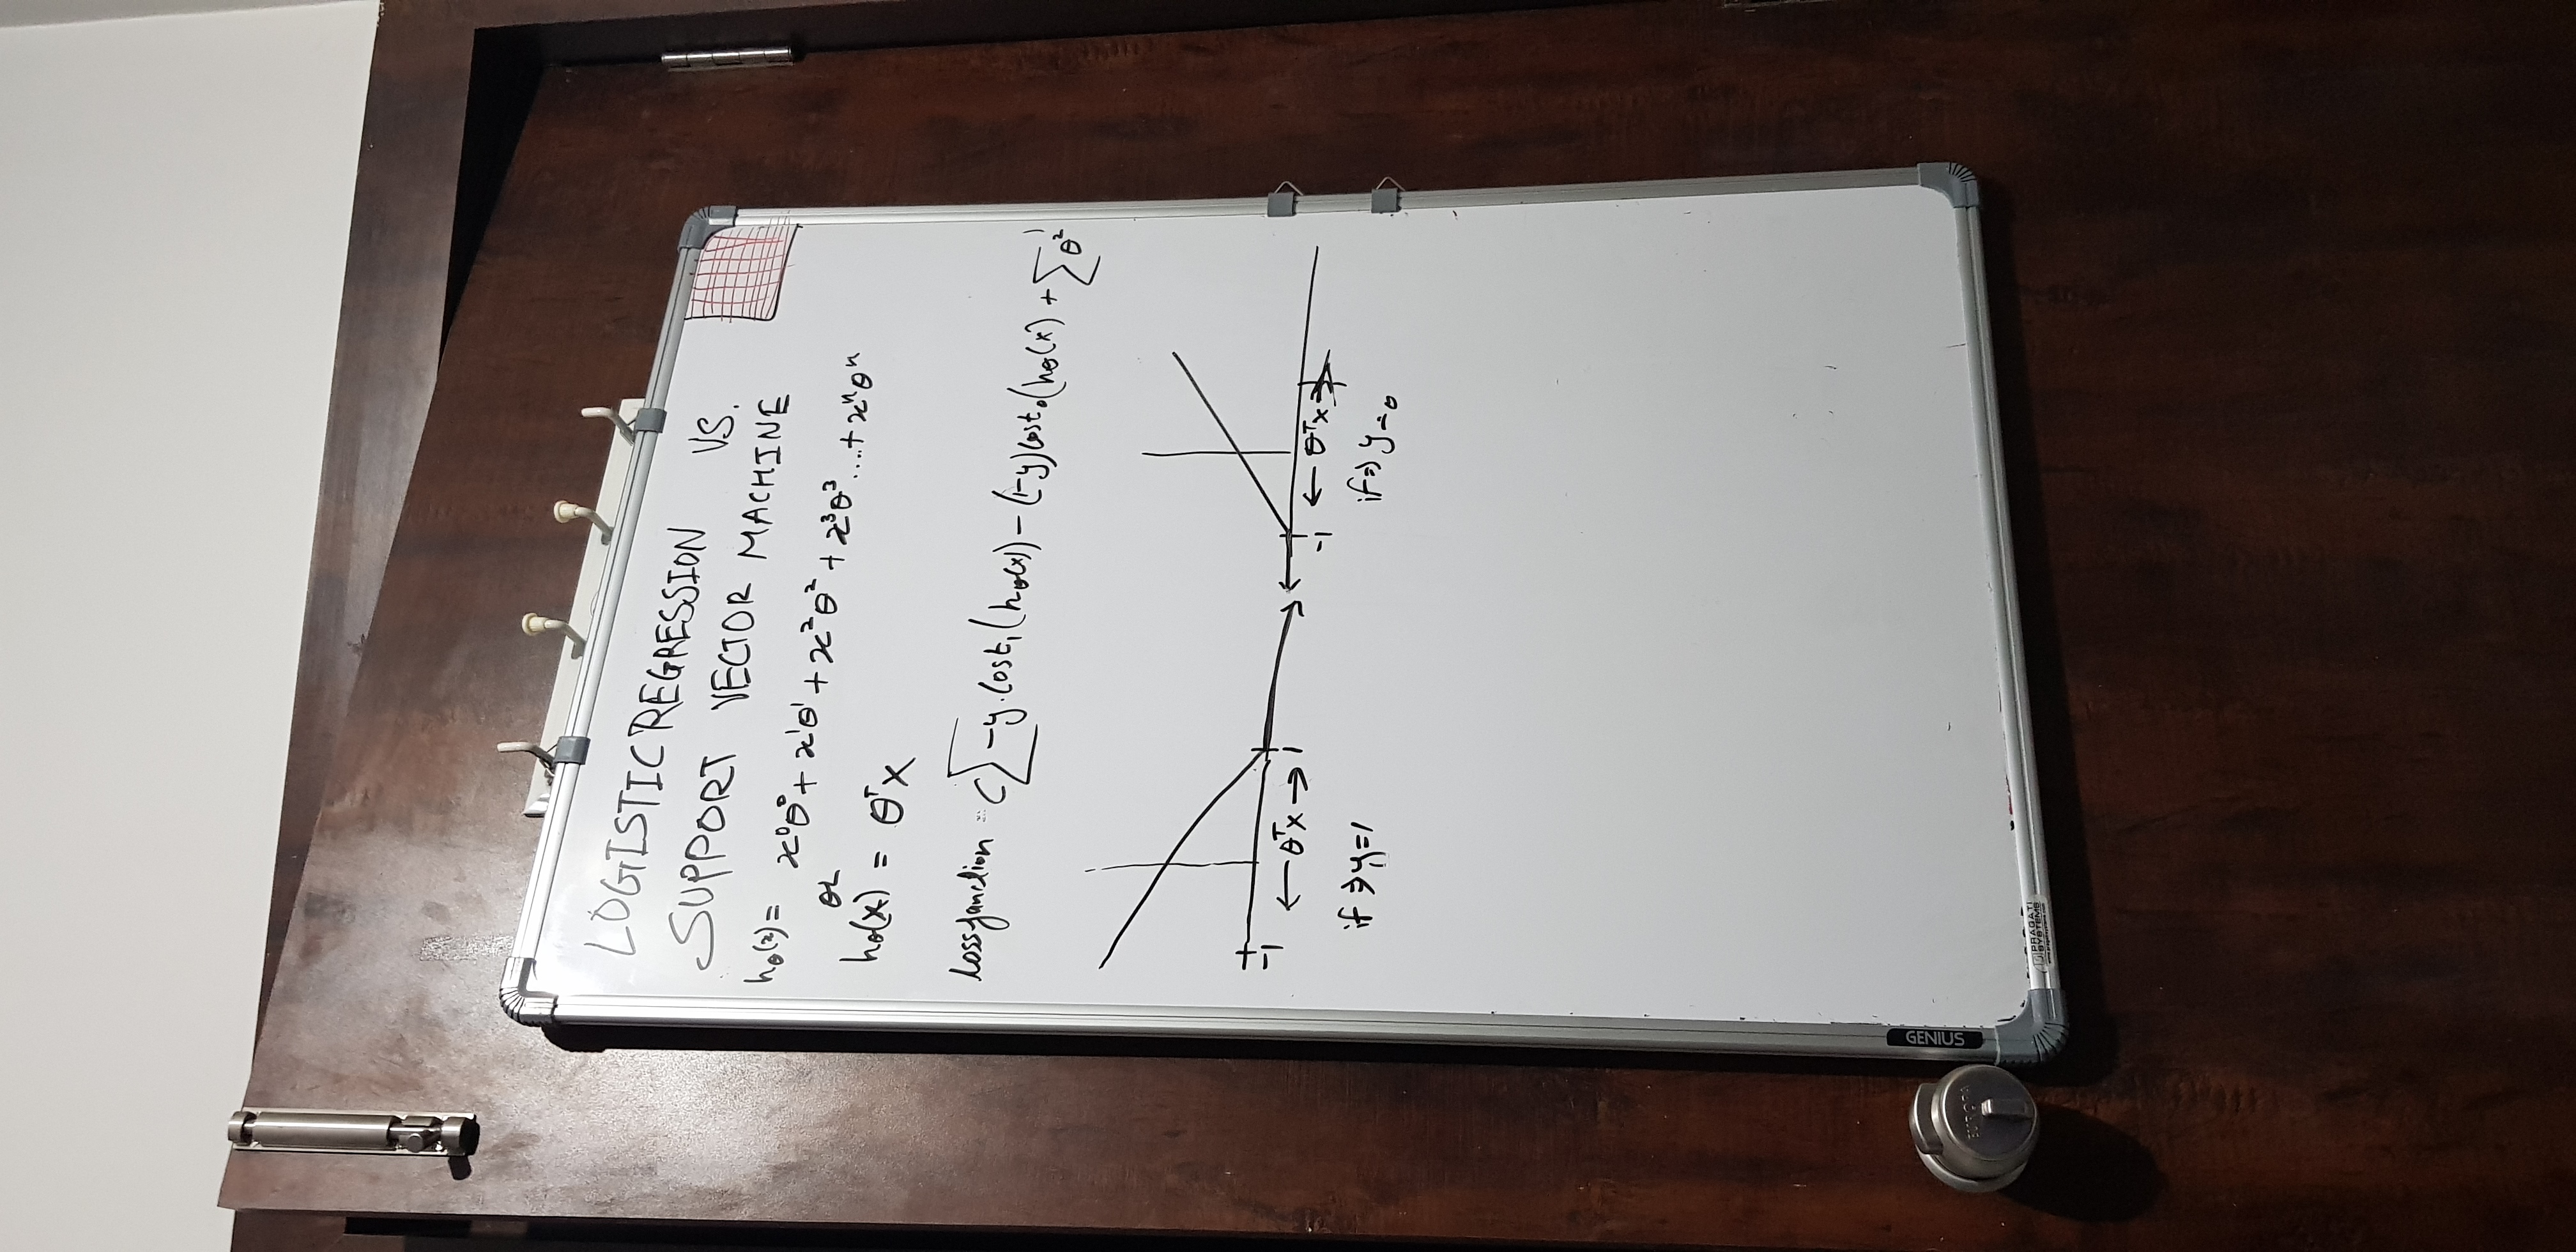 LOGISTIC REGRESSION VS.
SUPPORT VECTOR MACHINE
hθ(x) = x⁰θ⁰ + x¹θ¹ + x²θ² + x³θ³ ....+ xⁿθⁿ
OR
hθ(x) = θᵀx
Loss function = C∑ -y.Cost₁(hθ(x)) - (1-y)Cost₀(hθ(x) + ∑θ²
-1 ← θᵀx → 1
if ⇒ y=1
-1 ← θᵀx →
if ⇒ y=0
GENIUS
EUROPA
PRAGATI
SYSTEMS